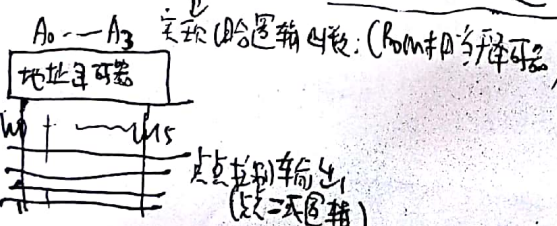 A0 --- A3
实现组合逻辑函数:(Rom相当译码器)
地址译码器
W0 --- W15
点点控制输出